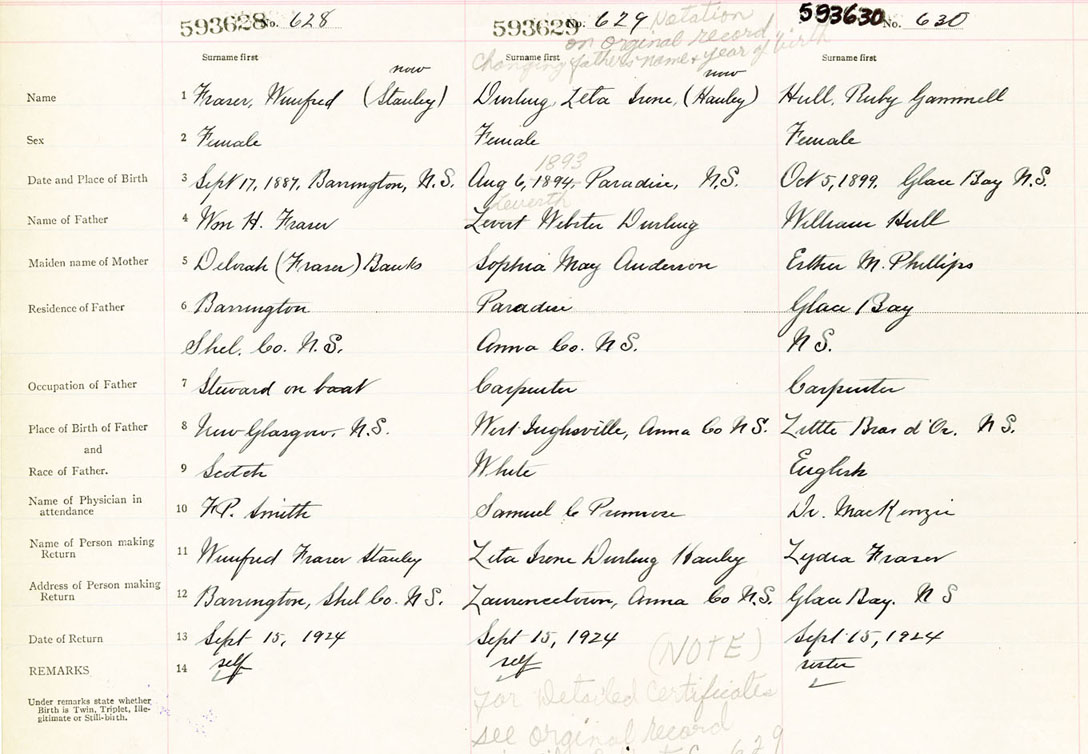 593628 No. 628 593629 No. 629 Notation 593630 No. 630
on orginal record
Changing father's name & year of birth
Surname first Surname first Surname first
now now
Name 1 Fraser, Winifred (Stanley) Durling, Leta Irene, (Hanley) Hull, Ruby Gammell
Sex 2 Female Female Female
1893
Date and Place of Birth 3 Sept 17, 1887, Barrington, N.S. Aug 6, 1894, Paradise, N.S. Oct 5, 1899, Glace Bay N.S.
Leverth
Name of Father 4 Wm H. Fraser Levert Webster Durling William Hull
Maiden name of Mother 5 Deborah (Fraser) Banks Sophia May Anderson Esther M. Phillips
Residence of Father 6 Barrington Paradise Glace Bay
Shel. Co. N.S. Anna Co. N.S. N.S.
Occupation of Father 7 Steward on boat Carpenter Carpenter
Place of Birth of Father 8 New Glasgow, N.S. West Inglisville, Anna Co N.S. Little Bras d'Or, N.S.
and
Race of Father. 9 Scotch White English
Name of Physician in
attendance 10 F.P. Smith Samuel C Primrose Dr. MacKenzie
Name of Person making
Return 11 Winifred Fraser Stanley Leta Irene Durling Hanley Lydia Fraser
Address of Person making
Return 12 Barrington, Shel Co. N.S. Laurencetown, Anna Co N.S. Glace Bay. N S
Date of Return 13 Sept 15, 1924 Sept 15, 1924 Sept 15, 1924
REMARKS 14 self self sister
(NOTE)
Under remarks state whether
Birth is Twin, Triplet, Ille-
gitimate or Still-birth.
For Detailed Certificates
see orginal record
629